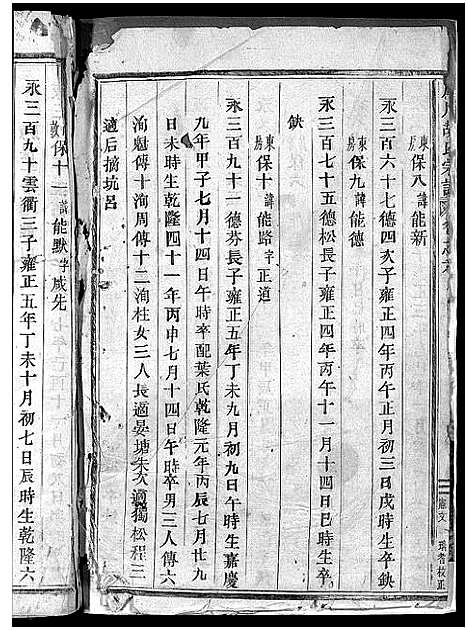 東房 保八 諱能新
永三百六十七德四次子雍正四年丙午正月初三日戌時生卒缺
東房 保九 諱能德
永三百七十五德松長子雍正四年丙午十一月十四日巳時生卒
缺
東房 保十 諱能路字正道
永三百九十一德芬長子雍正五年丁未九月初九日午時生嘉慶
九年甲子七月十四日午時卒配葉氏乾隆元年丙辰七月廿九
日未時生乾隆四十一年丙申七月十四日午時卒男三人傳六
洵魁傳十洵周傳十二洵柱女三人長適晏塘朱次適獨松程三
適后摘坑呂
保十一諱能默字咸先
永三百九十雲衢三子雍正五年丁未十月初七日辰時生乾隆六